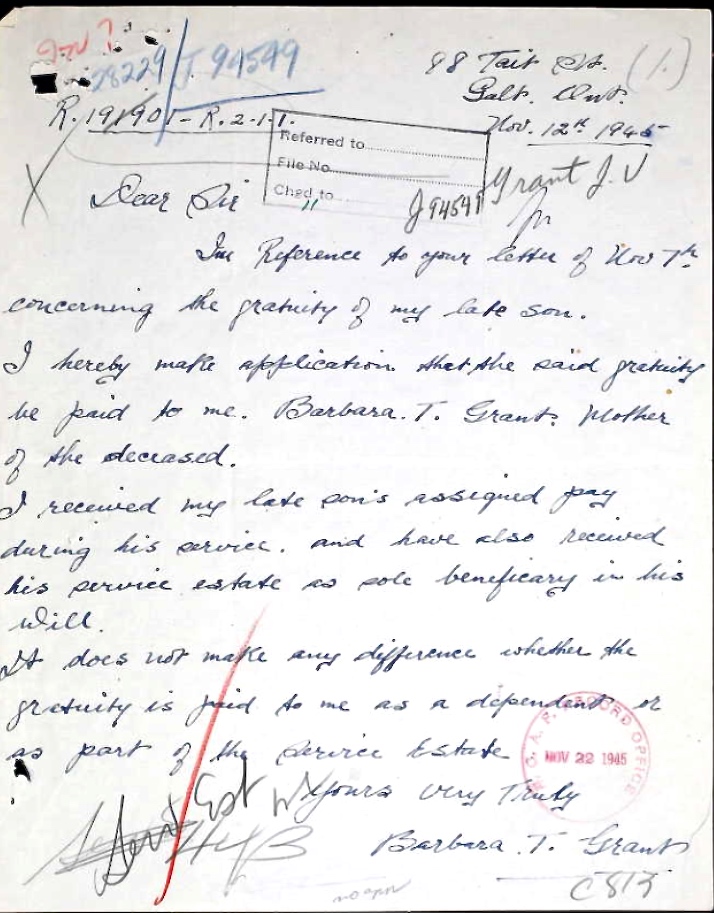 28229/J 94549
98 Tait St. (1.)
Galt. Ont.
R.191901-R.2-1-1.
Nov. 12th 1945
Referred to
File No.
Chgd to
J94549 Grant J.V
Dear Sir
In Reference to your letter of Nov 7th
concerning the gratuity of my late son.
I hereby make application that the said gratuity
be paid to me. Barbara. T. Grant. Mother
of the deceased.
I received my late son's assigned pay
during his service. and have also received
his service estate as sole beneficary in his
will.
It does not make any difference whether the
gratuity is paid to me as a dependent or
as part of the Service Estate
R. C. A. F. RECORD OFFICE
NOV 22 1945
Yours Very Truly
Barbara. T. Grant
C813